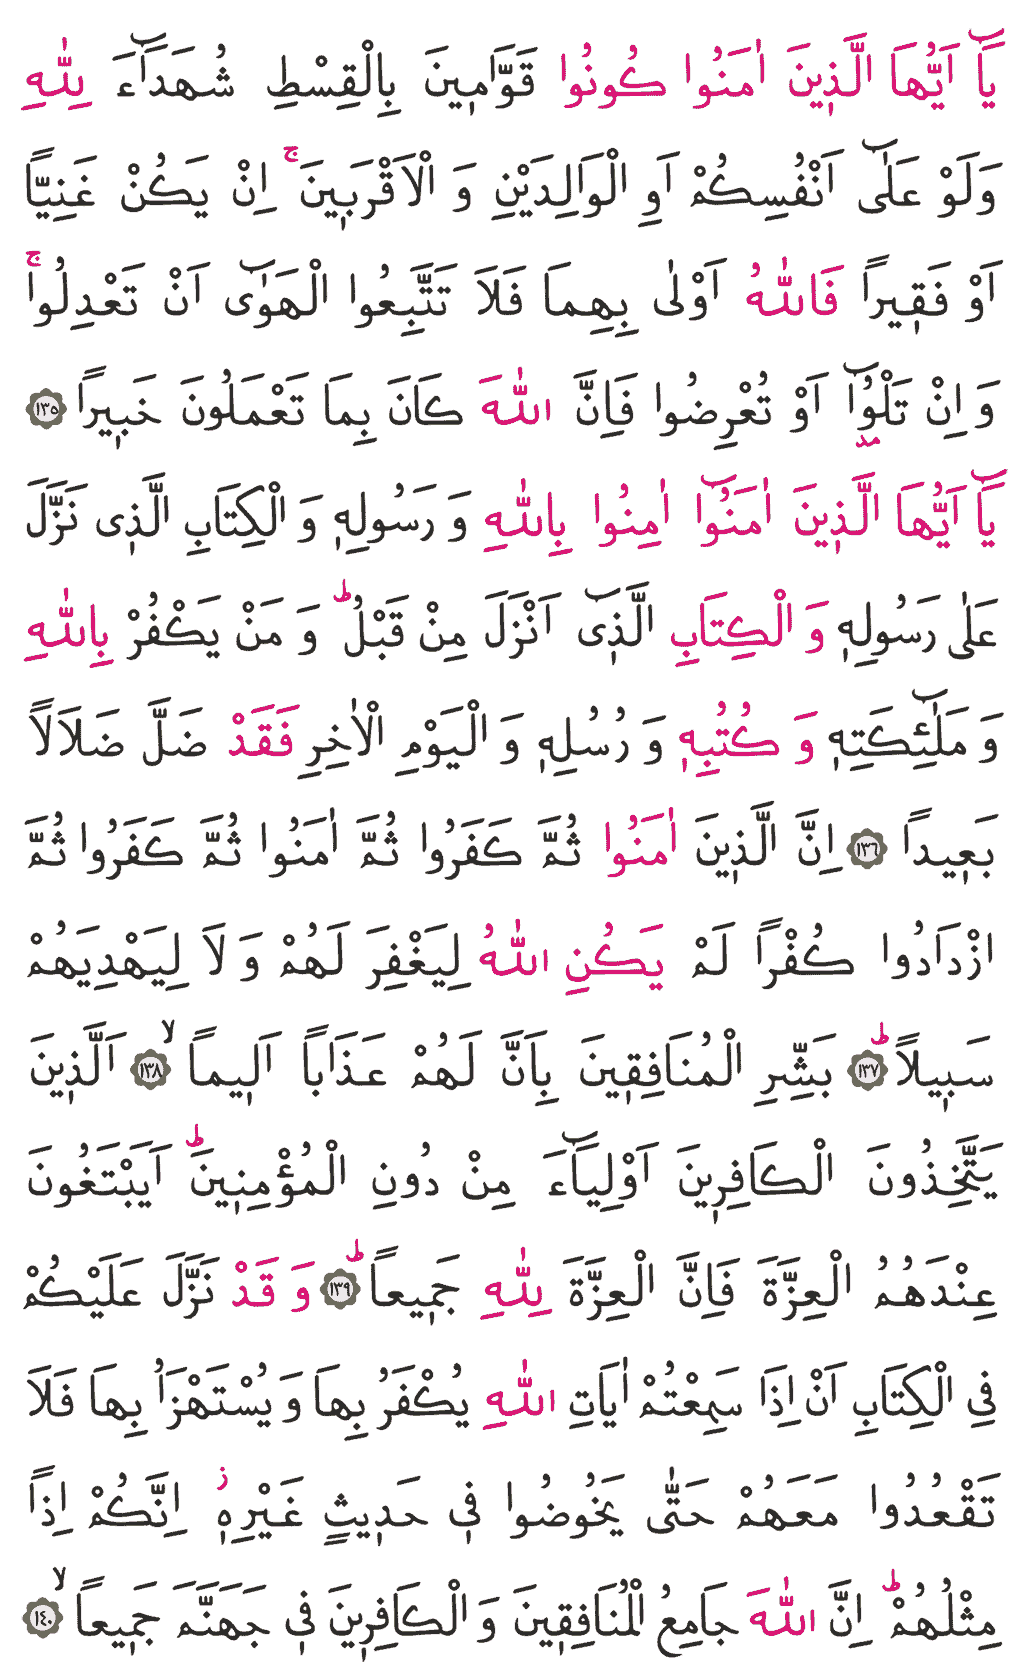 يَٓا اَيُّهَا الَّذٖينَ اٰمَنُوا كُونُوا قَوَّامٖينَ بِالْقِسْطِ شُهَدَٓاءَ لِلّٰهِ
وَلَوْ عَلٰٓى اَنْفُسِكُمْ اَوِ الْوَالِدَيْنِ وَ الْاَقْرَبٖينَۚ اِنْ يَكُنْ غَنِيًّا
اَوْ فَقٖيراً فَاللّٰهُ اَوْلٰى بِهِمَا فَلَا تَتَّبِعُوا الْهَوٰٓى اَنْ تَعْدِلُواۚ
وَ اِنْ تَلْوُٓا اَوْ تُعْرِضُوا فَاِنَّ اللّٰهَ كَانَ بِمَا تَعْمَلُونَ خَبٖيراً ﴿١٣٥﴾
يَٓا اَيُّهَا الَّذٖينَ اٰمَنُٓوا اٰمِنُوا بِاللّٰهِ وَ رَسُولِهٖ وَ الْكِتَابِ الَّذٖى نَزَّلَ
عَلٰى رَسُولِهٖ وَ الْكِتَابِ الَّذٖٓى اَنْزَلَ مِنْ قَبْلُؕ وَ مَنْ يَكْفُرْ بِاللّٰهِ
وَ مَلٰٓئِكَتِهٖ وَ كُتُبِهٖ وَ رُسُلِهٖ وَ الْيَوْمِ الْاٰخِرِ فَقَدْ ضَلَّ ضَلَالاً
بَعٖيداً ﴿١٣٦﴾ اِنَّ الَّذٖينَ اٰمَنُوا ثُمَّ كَفَرُوا ثُمَّ اٰمَنُوا ثُمَّ كَفَرُوا ثُمَّ
ازْدَادُوا كُفْراً لَمْ يَكُنِ اللّٰهُ لِيَغْفِرَ لَهُمْ وَ لَا لِيَهْدِيَهُمْ
سَبٖيلاًؕ ﴿١٣٧﴾ بَشِّرِ الْمُنَافِقٖينَ بِاَنَّ لَهُمْ عَذَاباً اَلٖيماًۙ ﴿١٣٨﴾ اَلَّذٖينَ
يَتَّخِذُونَ الْكَافِرٖينَ اَوْلِيَٓاءَ مِنْ دُونِ الْمُؤْمِنٖينَؕ اَيَبْتَغُونَ
عِنْدَهُمُ الْعِزَّةَ فَاِنَّ الْعِزَّةَ لِلّٰهِ جَمٖيعاًؕ ﴿١٣٩﴾ وَ قَدْ نَزَّلَ عَلَيْكُمْ
فِى الْكِتَابِ اَنْ اِذَا سَمِعْتُمْ اٰيَاتِ اللّٰهِ يُكْفَرُ بِهَا وَ يُسْتَهْزَاُ بِهَا فَلَا
تَقْعُدُوا مَعَهُمْ حَتّٰى يَخُوضُوا فٖى حَدٖيثٍ غَيْرِهٖؗ اِنَّكُمْ اِذاً
مِثْلُهُمْؕ اِنَّ اللّٰهَ جَامِعُ الْمُنَافِقٖينَ وَ الْكَافِرٖينَ فٖى جَهَنَّمَ جَمٖيعاًۙ ﴿١٤٠﴾